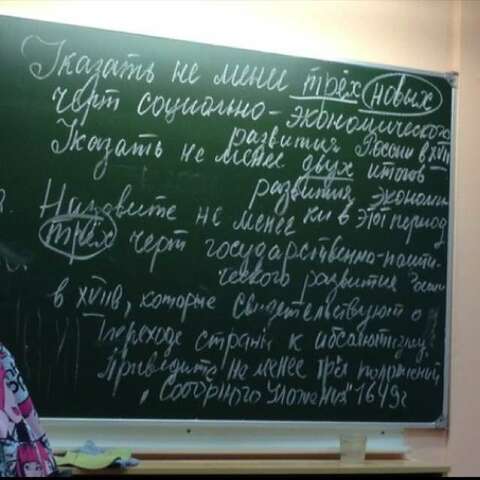 Указать не мене трёх новых
черт социально-экономического
развития России в XVII
Указать не менее двух итогов
развития экономи
ки в этот период
Назовите не менее
трёх черт государственно-полити-
ческого развития России
в XVIIв, которые свидетельствуют о
переходе страны к абсолютизму.
Приведить не менее трёх положений
"Соборного Уложения" 1649г